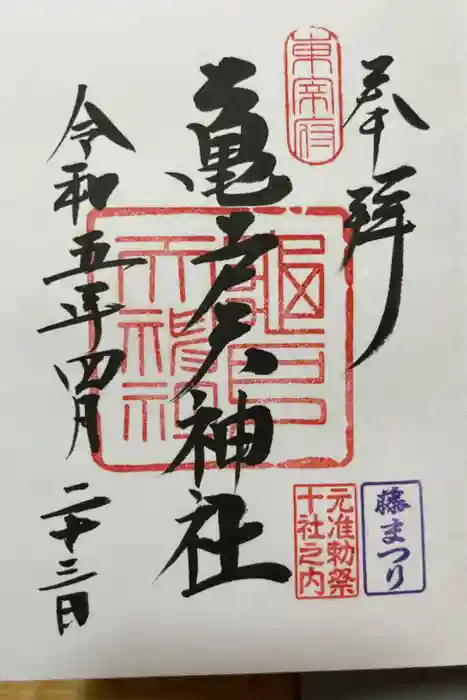 奉拝
東宰府
亀戸天神社
亀戸天神社
令和五年四月二十三日
藤まつり
元准勅祭
十社之内